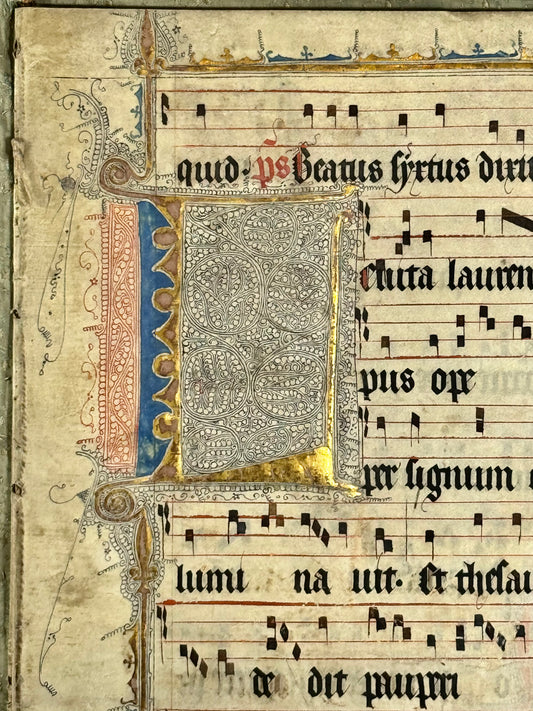 quid. ps Beatus syxtus dixit
Leuita lauren
pus ope
per signum
lumi na uit. Et thesau
de dit pauperi